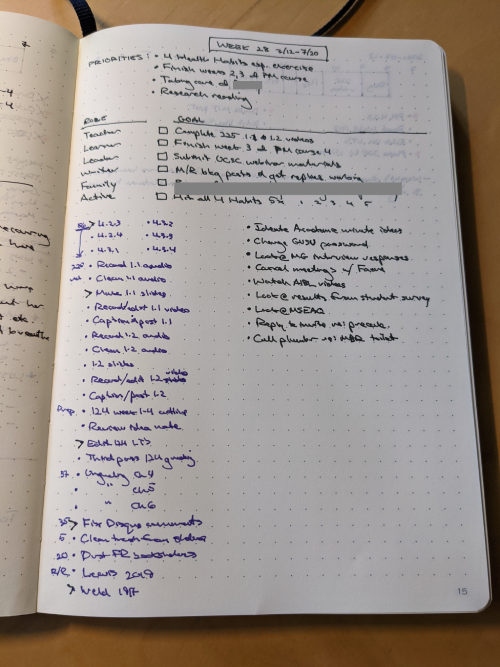 WEEK 28 7/12-7/20
PRIORITIES: • 4 Health Habits esp. exercise
• Finish weeks 2,3 of PM course
• Taking care of
• Research reading
ROLE GOAL
Teacher □ Complete 225 1.1 & 1.2 videos
Learner □ Finish week 3 of PM course 4
Leader □ Submit UCSC webinar materials
Writer □ M/R blog posts & get replies working
Family □
Active □ Hit all 4 Habits 5x 1 2 3 4 5
> 4.2.3 • 4.3.2
• 4.2.4 • 4.3.3
• 4.3.1 • 4.3.4
225 • Record 1.1 audio
• Clean 1.1 audio
> Make 1.1 slides
• Record/edit 1.1 video
• Caption & post 1.1
• Record 1.2 audio
• Clean 1.2 audio
• 1.2 slides
• Record/edit 1.2 video
• Caption/post 1.2
Prep • 124 week 1-4 outline
• Review
> Edit 124 LT's
• Third pass 124 grading
• Ch 4
• " Ch 5
• " Ch 6
> Fix Disqus comments
5 • Clean trash from
20 • Dust FR bookshelves
R/R • Lewis 2018
> Weld 1977
• Ideate Acatome website ideas
• Change GVSU password
• Look @ MG interview responses
• Cancel meetings w/
• Watch videos
• Look @ results from student survey
• Look @ MSEAQ
• Reply to re:
• Call plumber re: MBR toilet
15